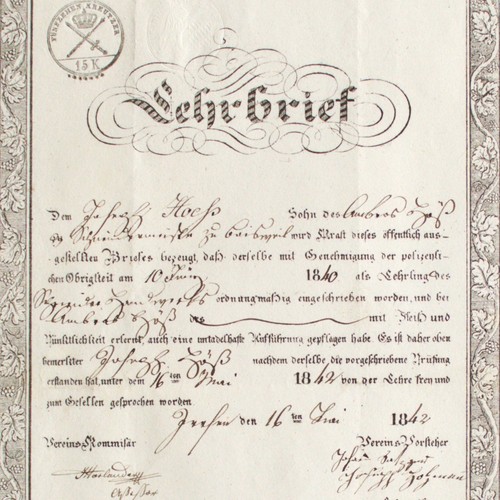 FÜNFZEHN KREUTZER
15 K
Lehrbrief
Dem Joseph Hoeß Sohn des Ambros Höß
Schneidermeister zu wird Kraft dieses öffentlich aus-
gestellten Briefes bezeugt, daß derselbe mit Genehmigung der polizeyli-
chen Obrigkeit am 10 Juni 1840 als Lehrling des
Schneider Handwerks ordnungmäßig eingeschrieben worden, und bei
Ambros Höß des mit Fleiß und
Pünktlichkeit erlernt, auch eine untadelhafte Aufführung gepflogen habe. Es ist daher oben
bemerkter Joseph Höß nachdem derselbe die vorgeschriebene Prüfung
erstanden hat, unter dem 16ten Mai 1842 von der Lehre frey und
zum Gesellen gesprochen worden
den 16ten Mai 1842
Vereins Kommisär Vereins Vorsteher